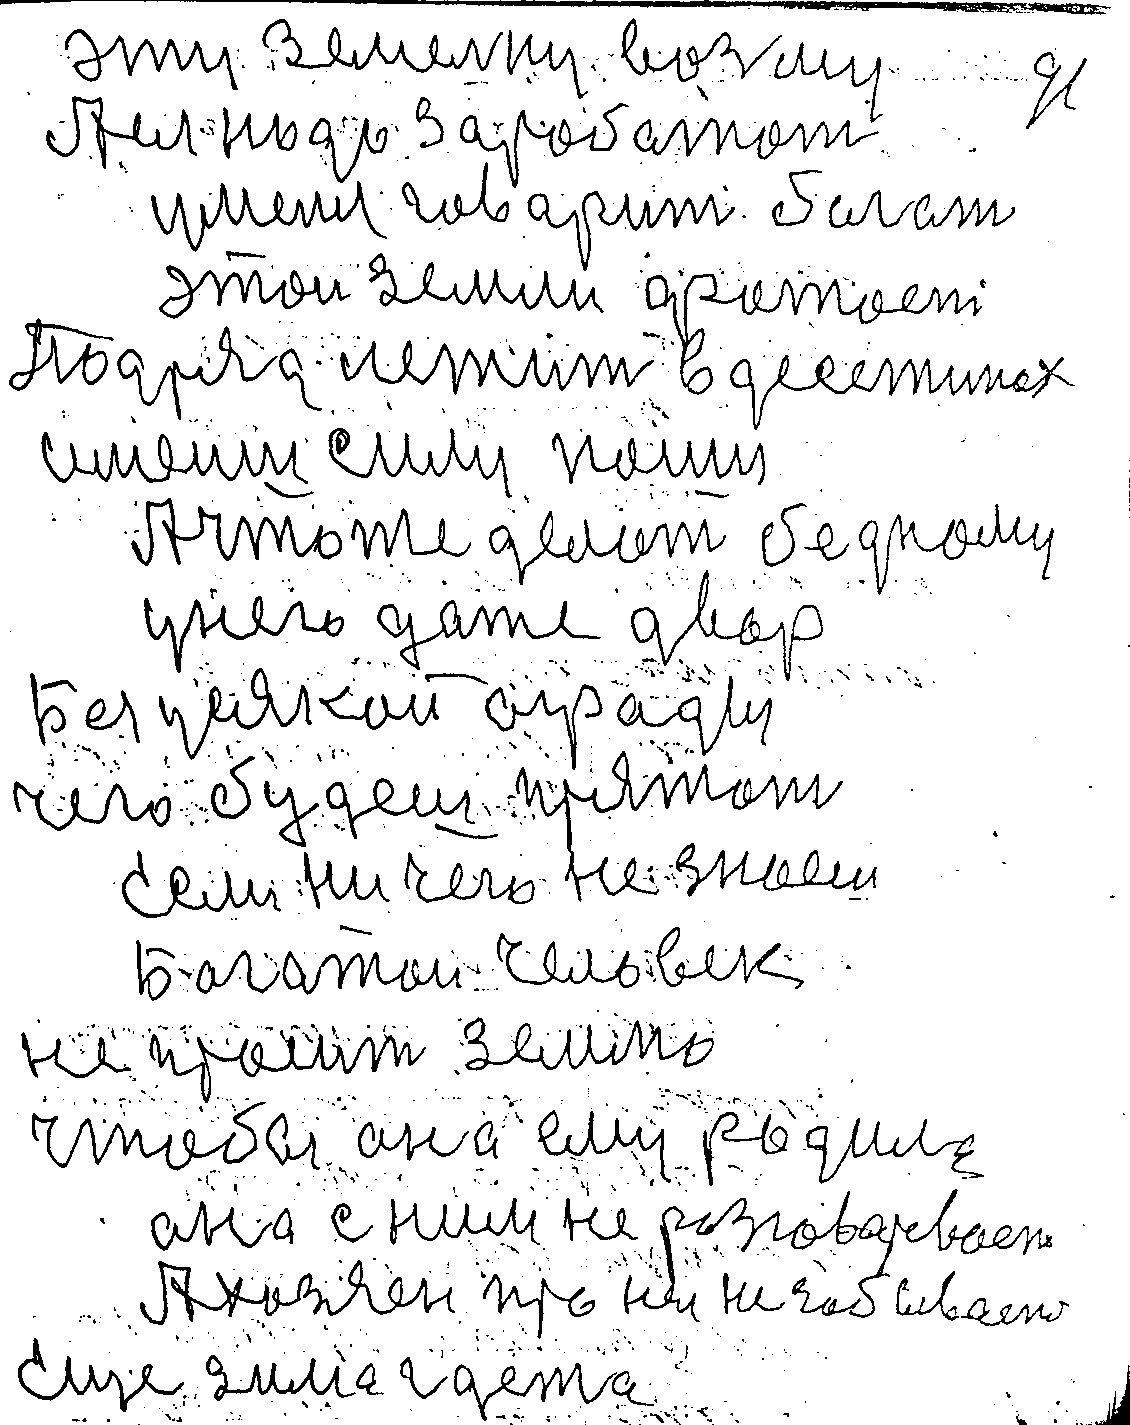 эту земелку возму 91
Ален ньдь заработот
умени говарит багат
этои земли дротоеш
Подряд лежит в десетинах
имени силу пашы
А чтоже делат бедному
унего даже двор
Без усякой ограды
чего будеш прятат
Сели ни чего не знаеш
Богатои человек
не просит землю
чтобы она ему родила
она с ним не розговаревает
А хозяен про неи не забывает
Сще зима где та